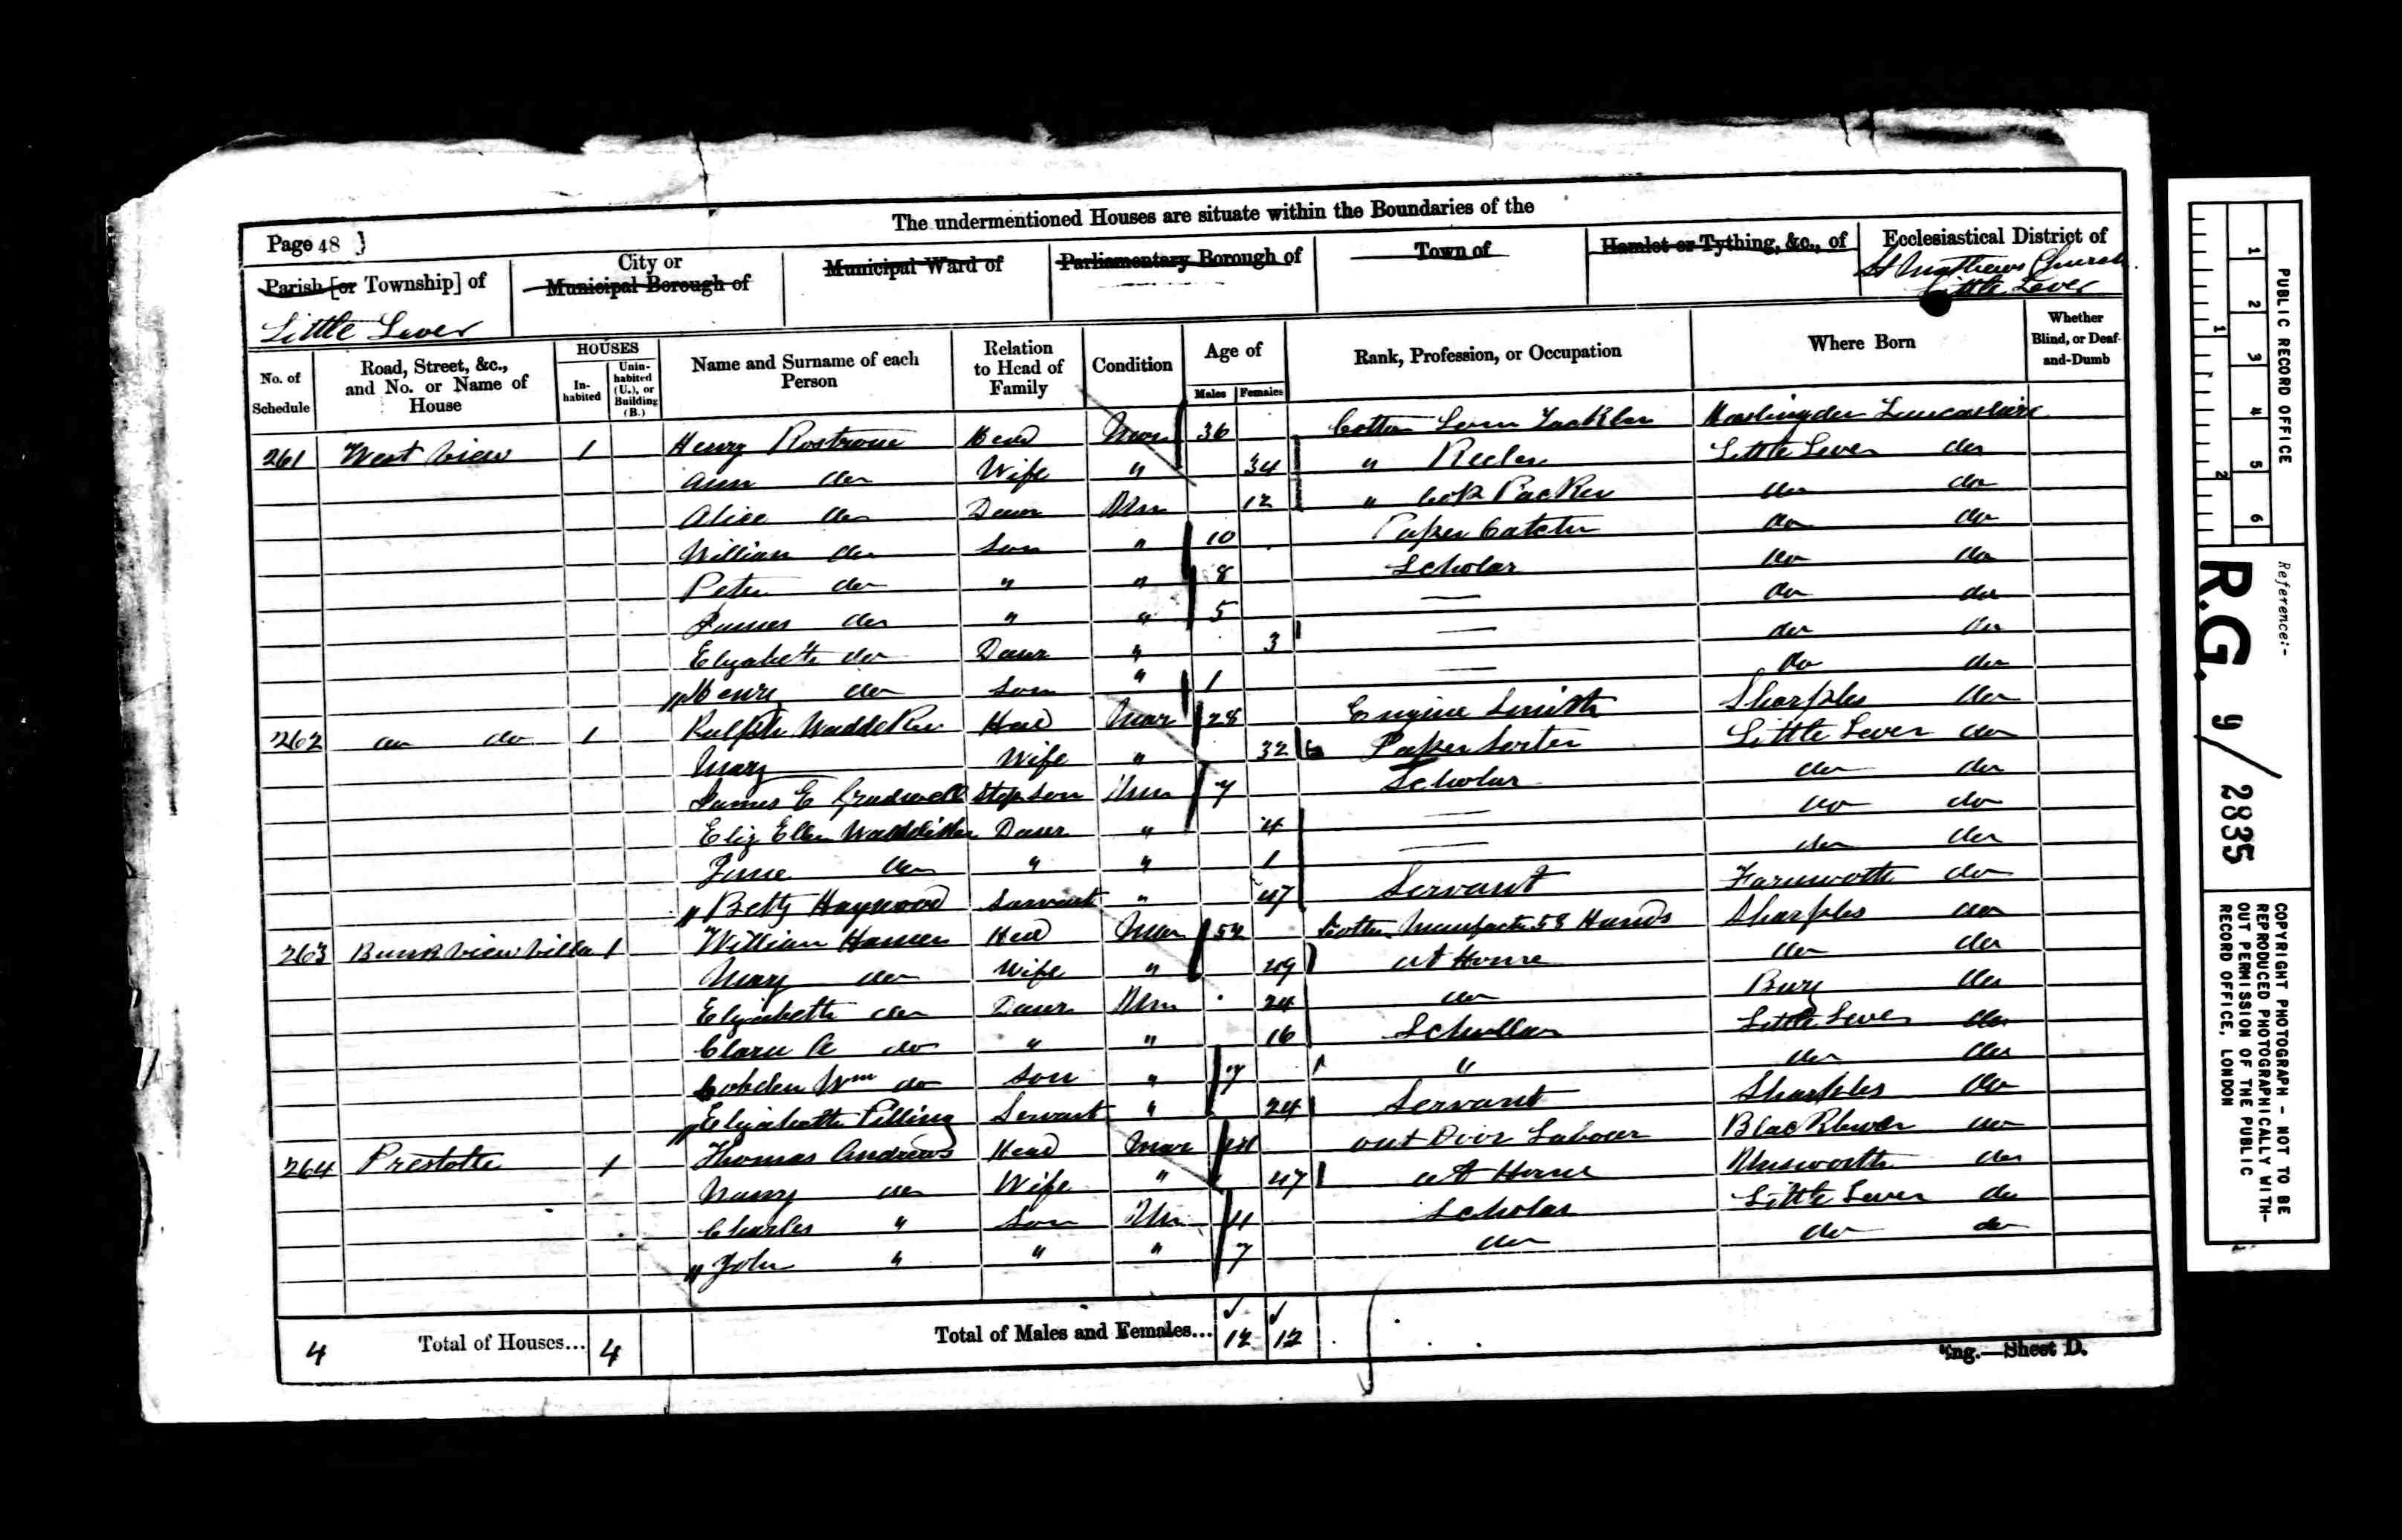 The undermentioned Houses are situate within the Boundaries of the
Page 48 }
Parish [or Township] of
Little Lever
City or
Municipal Borough of
Municipal Ward of
Parliamentary Borough of
Town of
Hamlet or Tything, &c., of
Ecclesiastical District of
St Mathews Church
Little Lever
No. of Schedule
Road, Street, &c., and No. or Name of House
HOUSES
In-habited
Unin-habited (U.), or Building (B.)
Name and Surname of each Person
Relation to Head of Family
Condition
Age of
Males Females
Rank, Profession, or Occupation
Where Born
Whether Blind, or Deaf-and-Dumb
261 West View 1 Henry Rostrone Head Mar 36 Cotton Haslingden Lancashire
Ann do Wife " 34 " Reeler Little Lever do
Alice do Daur Unm 12 " Cop Packer do do
William do Son " 10 Paper Catcher do do
Peter do " " 8 Scholar do do
James do " " 5 — do do
Elizabeth do Daur " 3 — do do
Henry do Son " 1 — do do
262 do do 1 Ralph Head Mar 28 Engine Smith Sharples do
Mary Wife " 32 Paper Sorter Little Lever do
James E Gradwell Stepson Unm 7 Scholar do do
Eliz Ellen Daur " 4 — do do
Jane do " " 1 — do do
" Betty Haywood Servant " 47 Servant Farnworth do
263 Bank View Villa 1 William Hamer Head Mar 52 Cotton Manufactr 58 Hands Sharples do
Mary do Wife " 49 at Home do do
Elizabeth do Daur Unm 24 do Bury do
Clara A do " " 16 Schollar Little Lever do
Cobden Wm do Son " 7 " do do
" Elizabeth Pilling Servant " 24 Servant Sharples do
264 Prestolee 1 Thomas Andrews Head Mar out Door Labour do
Nancy do Wife " 47 at Home Unsworth do
Charles " Son Unm 11 Scholar Little Lever do
" John " " " 7 do do do
4 Total of Houses... 4
Total of Males and Females... 12 12
Eng.—Sheet D.
PUBLIC RECORD OFFICE
1 2 3 4 5 6
1 2
Reference:-
R.G. 9/2835
COPYRIGHT PHOTOGRAPH - NOT TO BE
REPRODUCED PHOTOGRAPHICALLY WITH-
OUT PERMISSION OF THE PUBLIC
RECORD OFFICE, LONDON